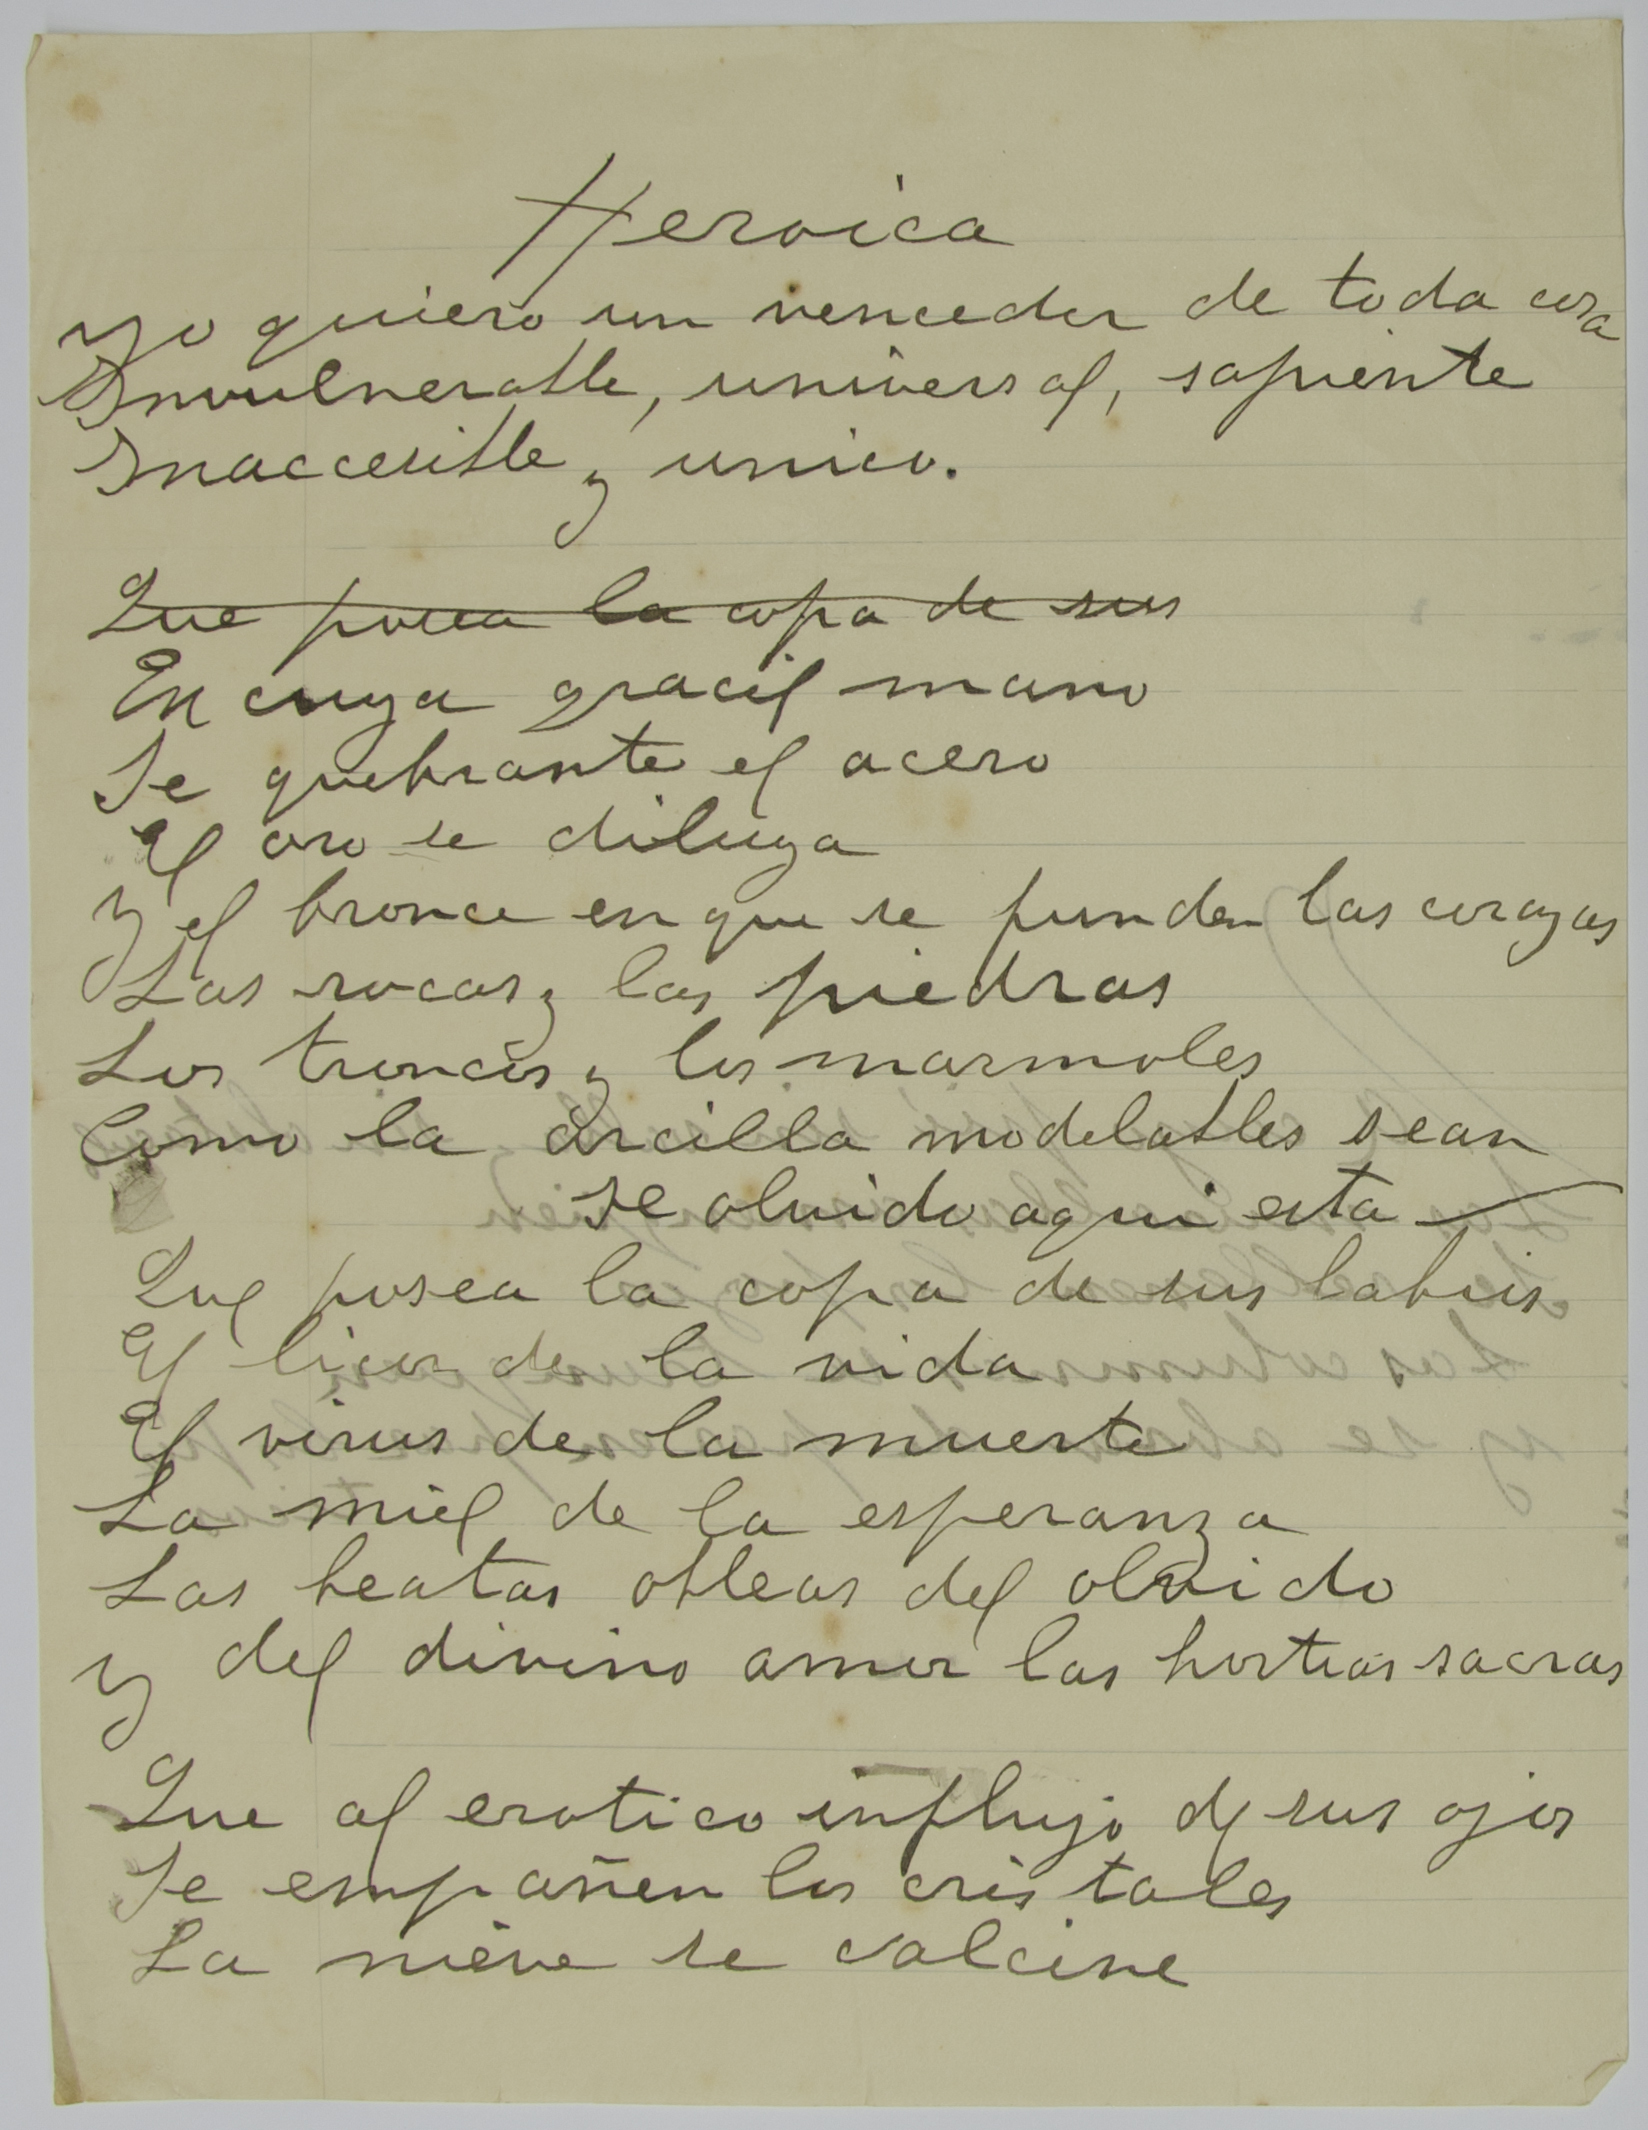 Heroica
Yo quiero un vencedor de toda cosa
Invulnerable, universal, sapiente
Inaccesible y unico.
Que posea la copa de sus
En cuya gracil mano
Se quebrante el acero
El oro se diluya
Y el bronce en que se funden las corazas
Las rocas y las piedras
Los troncos y los marmoles
Como la arcilla modelables sean
se olvido aqui esta
Que posea la copa de sus labios
El licor de la vida
El virus de la muerte
La miel de la esperanza
Las beatas obleas del olvido
Y del divino amor las hostias sacras
Que al erotico influjo de sus ojos
Se empañen los cristales
La nieve se calcine